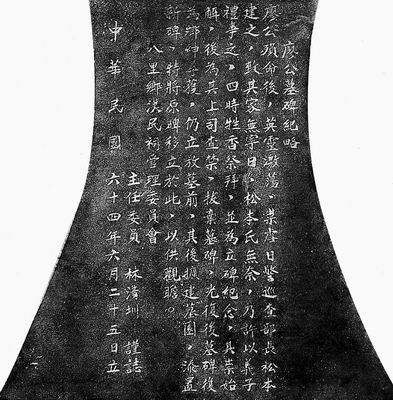 廖公墓碑紀略
廖公殞命後，英靈激蕩。祟虐日警巡查部長松本
建之，致其家無寧日，松本氏無奈，乃許以義子
禮事之，四時牲香祭拜，並為立碑紀念，其祟始
解，後為其上司查禁，拔棄墓碑，光復後墓碑復
為鄉紳獲，仍立故墓前，其後擴建墓園，添置
新碑，特將原碑移立於此，以供觀瞻。
八里鄉漢民祠管理委員會
主任委員 林圳 謹誌
中華民國六十四年六月二十五日立